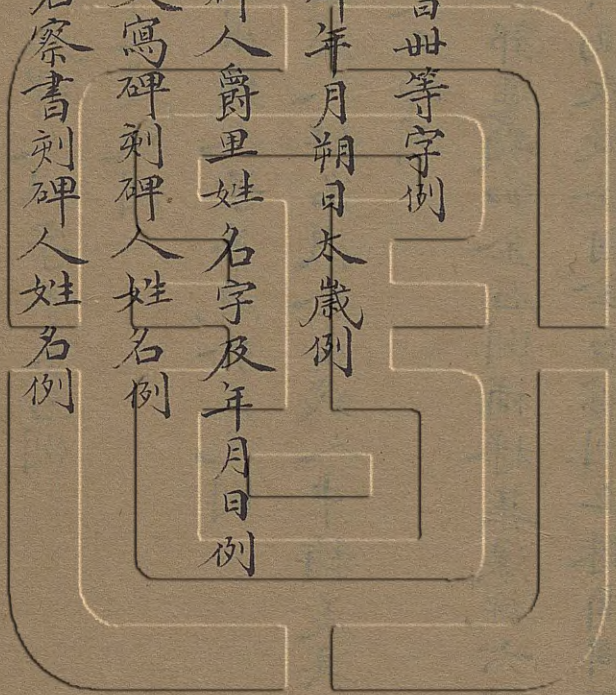 卌等字例
年月朔日太歲例
人爵里姓名字及年月日例
寫碑刻碑人姓名例
察書刻碑人姓名例